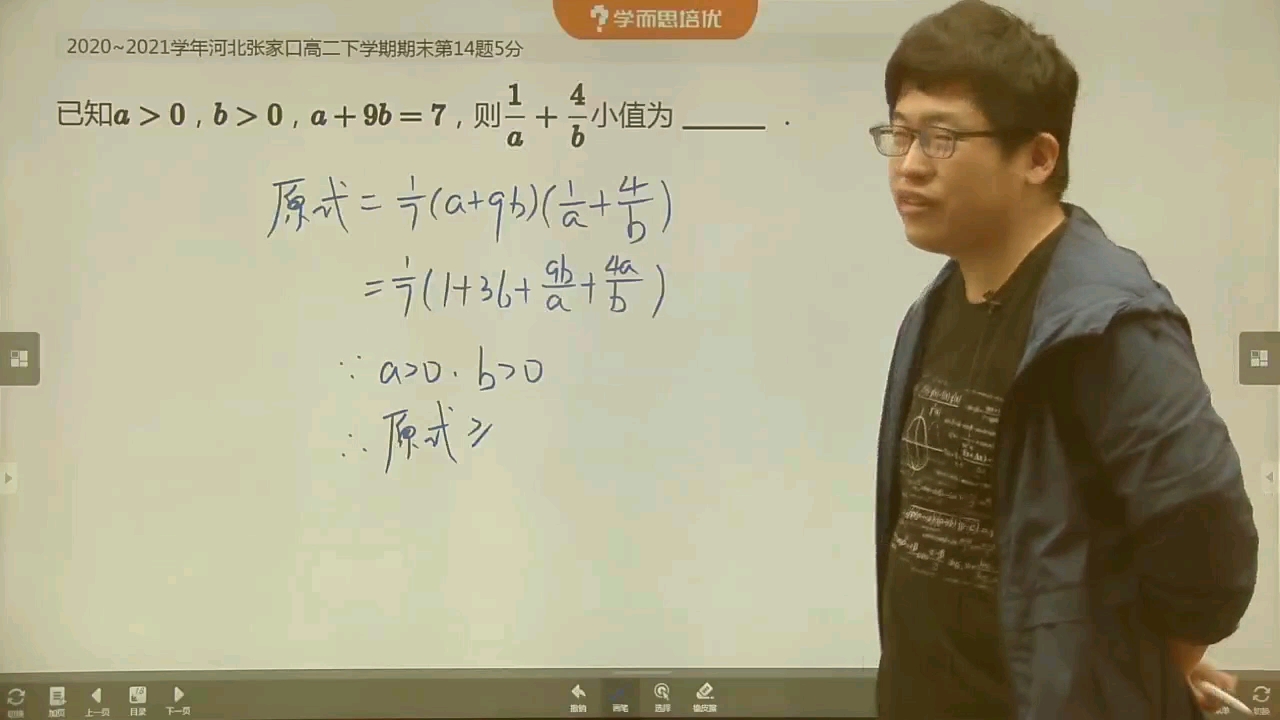 学而思培优
2020~2021学年河北张家口高二下学期期末第14题5分
已知a > 0，b > 0，a + 9b = 7，则 1/a + 4/b 小值为 ______ ．
原式 = 1/7 (a+9b)(1/a + 4/b)
= 1/7 (1+36+ 9b/a + 4a/b)
∵ a>0 . b>0
∴ 原式 ≥
切换 加页 上一页 目录 下一页 撤销 画笔 选择 橡皮擦 切换